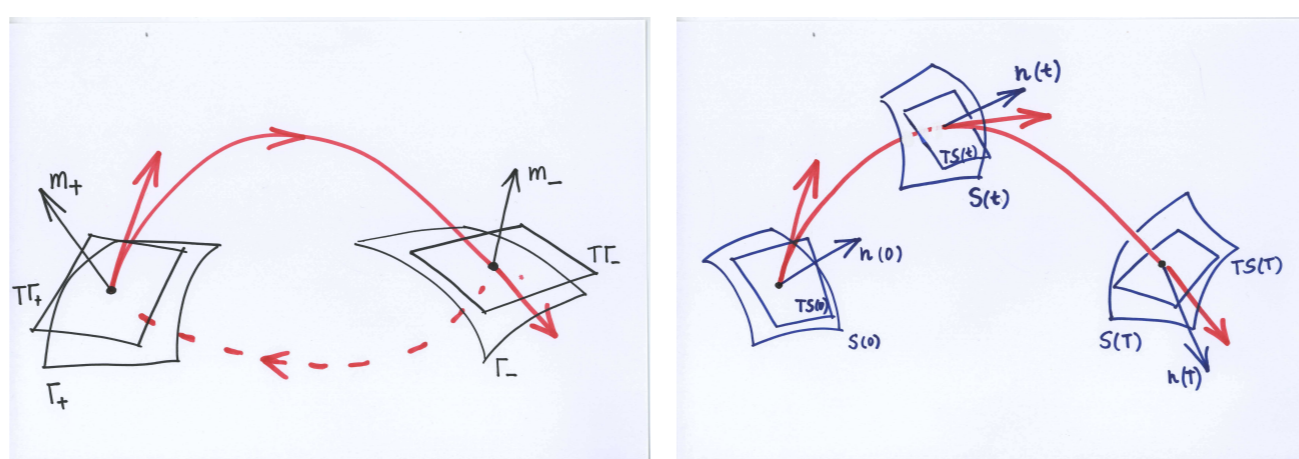 m₊
m₋
TΓ₊
TΓ₋
Γ₊
Γ₋
n(t)
TS(t)
S(t)
n(0)
TS(0)
S(0)
TS(T)
S(T)
n(T)